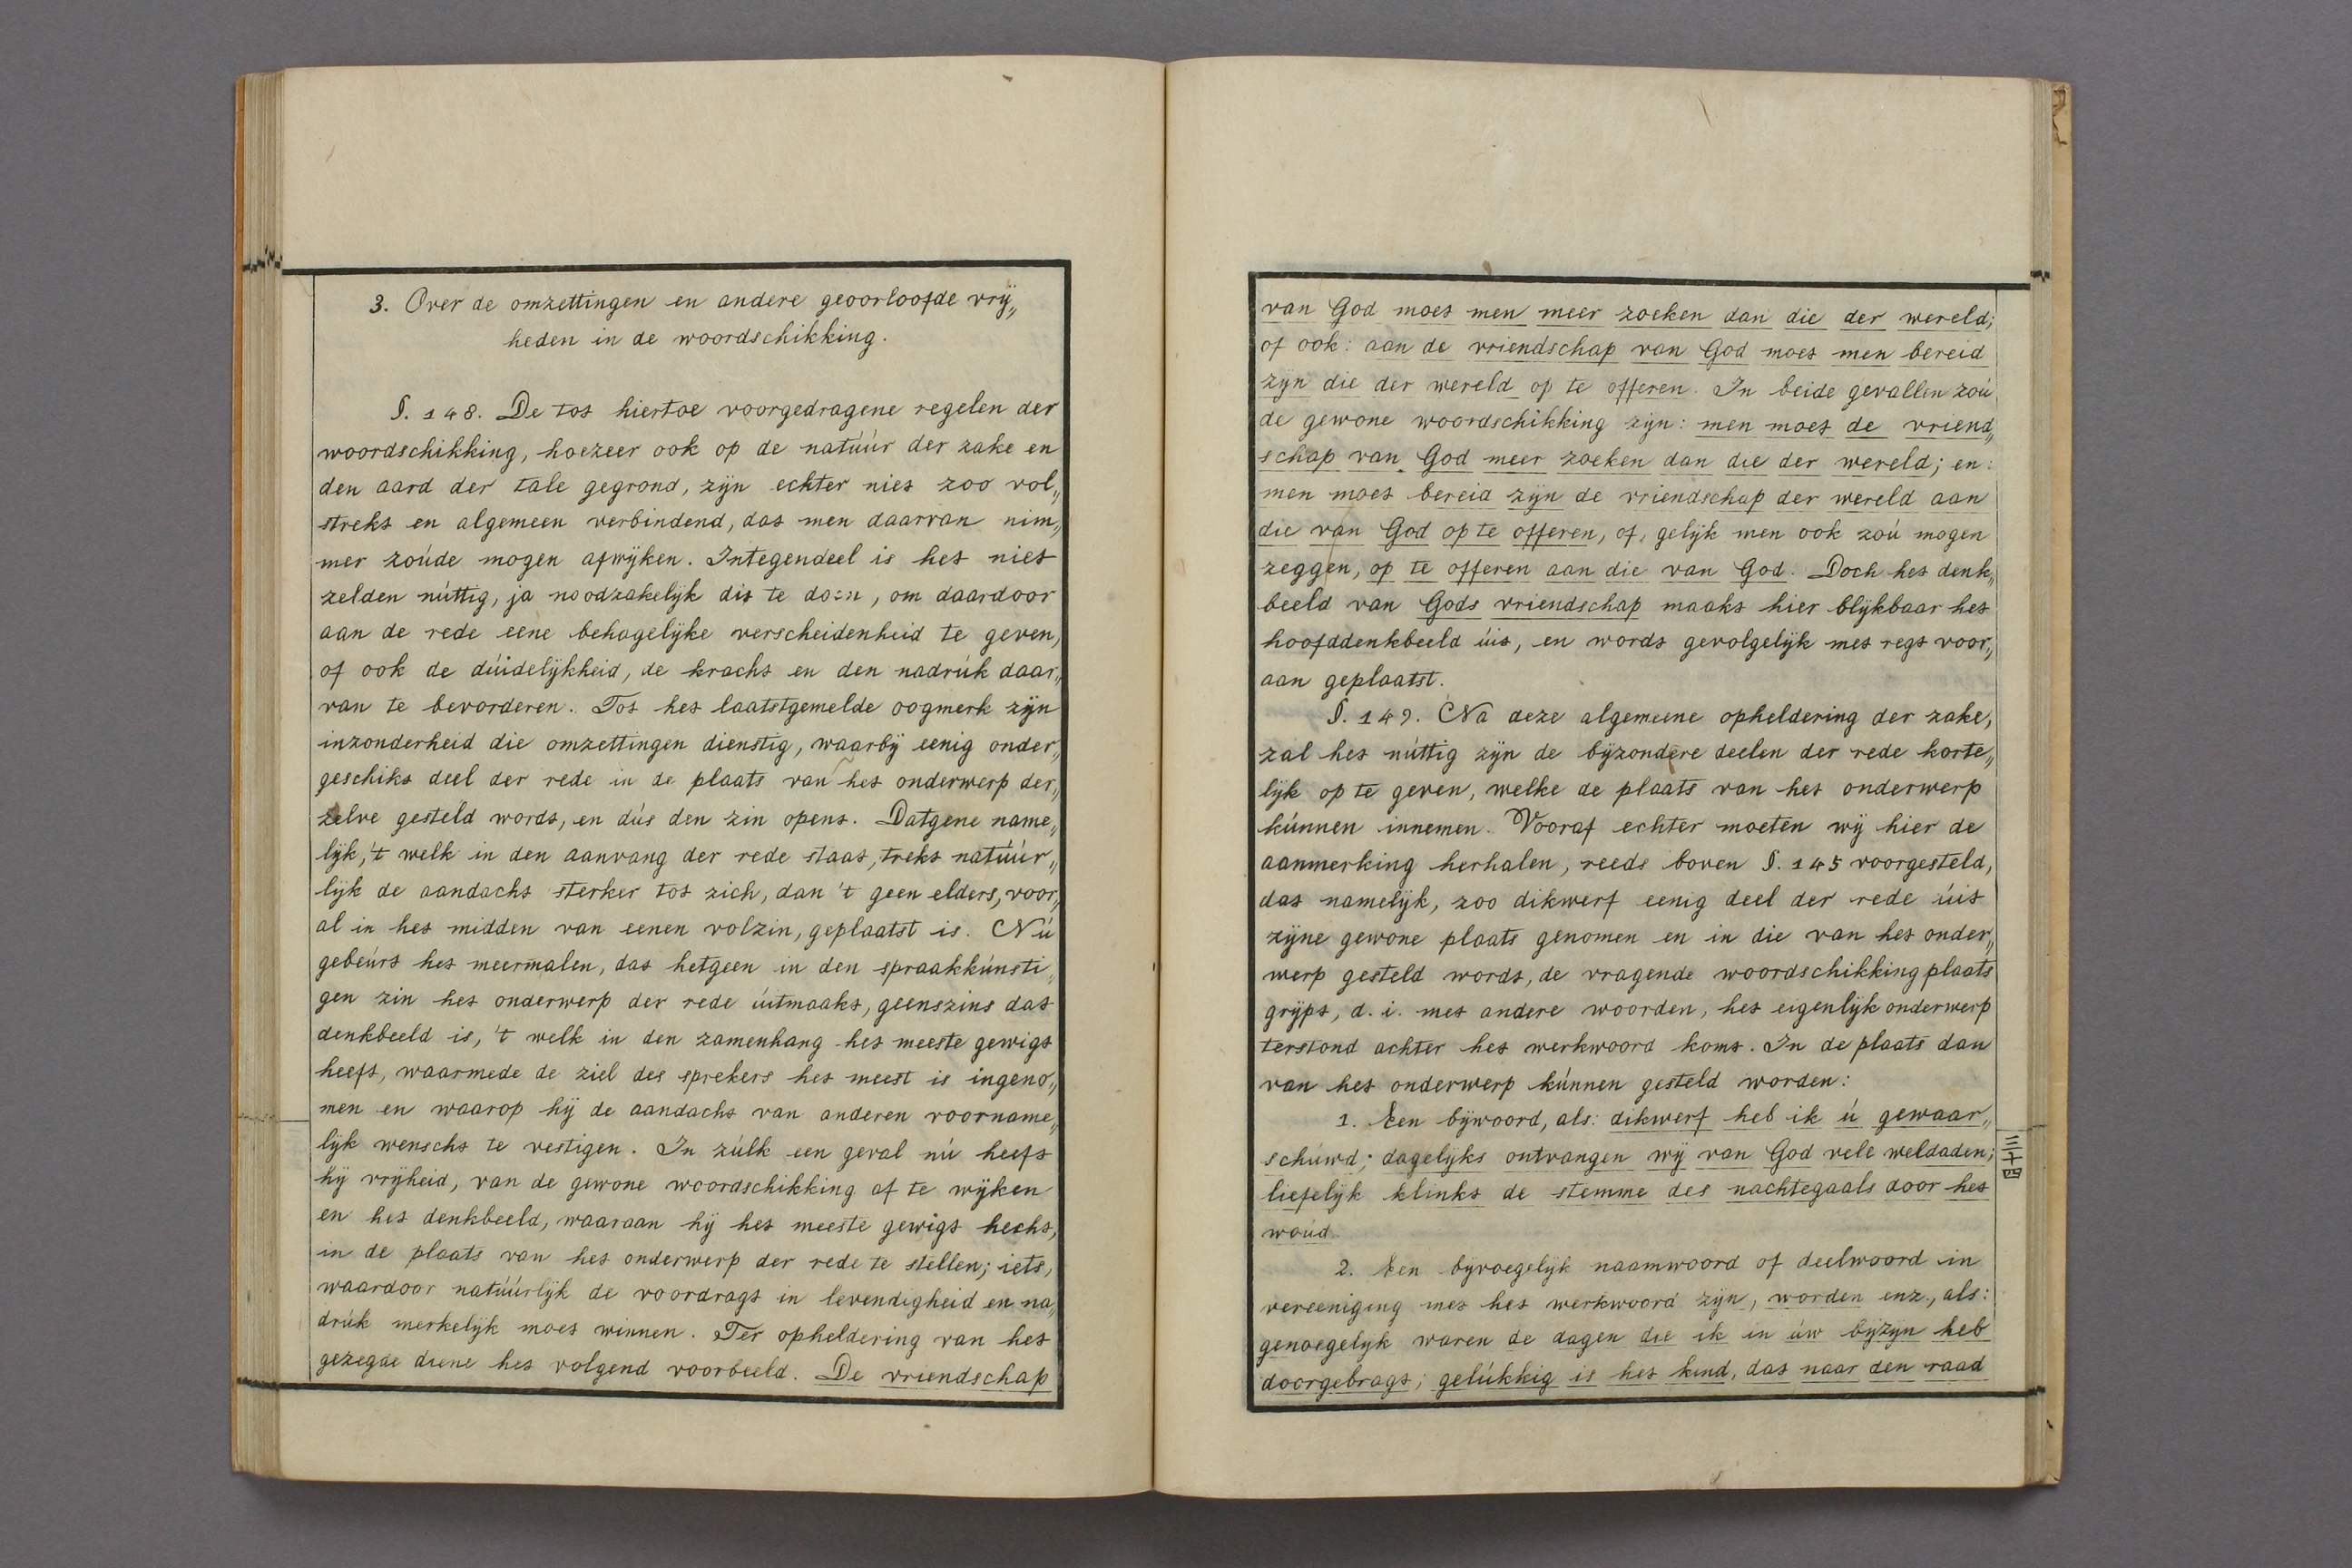 3. Over de omzettingen en andere geoorloofde vrij„
heden in de woordschikking.
§. 148. De tot hiertoe voorgedragene regelen der
woordschikking, hoezeer ook op de natúúr der zake en
den aard der tale gegrond, zijn echter niet zoo vol„
strekt en algemeen verbindend, dat men daarvan nim„
mer zoúde mogen afwijken. Integendeel is het niet
zelden núttig, ja noodzakelijk dit te doen, om daardoor
aan de rede eene behagelijke verscheidenheid te geven,
of ook de dúidelijkheid, de kracht en den nadrúk daar„
van te bevorderen. Tot het laatstgemelde oogmerk zijn
inzonderheid die omzettingen dienstig, waarbij eenig onder„
geschikt deel der rede in de plaats van het onderwerp der„
zelve gesteld wordt, en dús den zin opent. Datgene name„
lijk, 't welk in den aanvang der rede staat, trekt natúúr„
lijk de aandacht sterker tot zich, dan 't geen elders, voor„
al in het midden van eenen volzin, geplaatst is. Nú
gebeúrt het meermalen, dat hetgeen in den spraakkúnsti„
gen zin het onderwerp der rede úitmaakt, geenszins dat
denkbeeld is, 't welk in den zamenhang het meeste gewigt
heeft, waarmede de ziel des sprekers het meest is ingeno„
men en waarop hij de aandacht van anderen voorname„
lijk wenscht te vestigen. In zúlk een geval nú heeft
hij vrijheid, van de gewone woordschikking af te wijken
en het denkbeeld, waaraan hij het meeste gewigt hecht,
in de plaats van het onderwerp der rede te stellen; iets,
waardoor natúúrlijk de voordragt in levendigheid en na„
drúk merkelijk moet winnen. Ter opheldering van het
gezegde diene het volgend voorbeeld. De vriendschap
van God moet men meer zoeken dan die der wereld;
of ook: aan de vriendschap van God moet men bereid
zijn die der wereld op te offeren. In beide gevallen zoú
de gewone woordschikking zijn: men moet de vriend„
schap van God meer zoeken dan die der wereld; en:
men moet bereid zijn de vriendschap der wereld aan
die van God op te offeren, of, gelijk men ook zoú mogen
zeggen, op te offeren aan die van God. Doch het denk„
beeld van Gods vriendschap maakt hier blijkbaar het
hoofddenkbeeld úit, en wordt gevolgelijk met regt voor„
aan geplaatst.
§. 149. Na deze algemeene opheldering der zake,
zal het núttig zijn de bijzondere deelen der rede korte„
lijk op te geven, welke de plaats van het onderwerp
kúnnen innemen. Vooraf echter moeten wij hier de
aanmerking herhalen, reeds boven §. 145 voorgesteld,
dat namelijk, zoo dikwerf eenig deel der rede úit
zijne gewone plaats genomen en in die van het onder„
werp gesteld wordt, de vragende woordschikking plaats
grijpt, d. i. met andere woorden, het eigenlijk onderwerp
terstond achter het werkwoord komt. In de plaats dan
van het onderwerp kúnnen gesteld worden:
1. Een bijwoord, als: dikwerf heb ik ú gewaar„
schúwd; dagelijks ontvangen wij van God vele weldaden;
liefelijk klinkt de stemme des nachtegaals door het
woúd.
2. Een bijvoegelijk naamwoord of deelwoord in
vereeniging met het werkwoord zijn, worden enz., als:
genoegelijk waren de dagen die ik in úw bijzijn heb
doorgebragt; gelúkkig is het kind, dat naar den raad
三十四